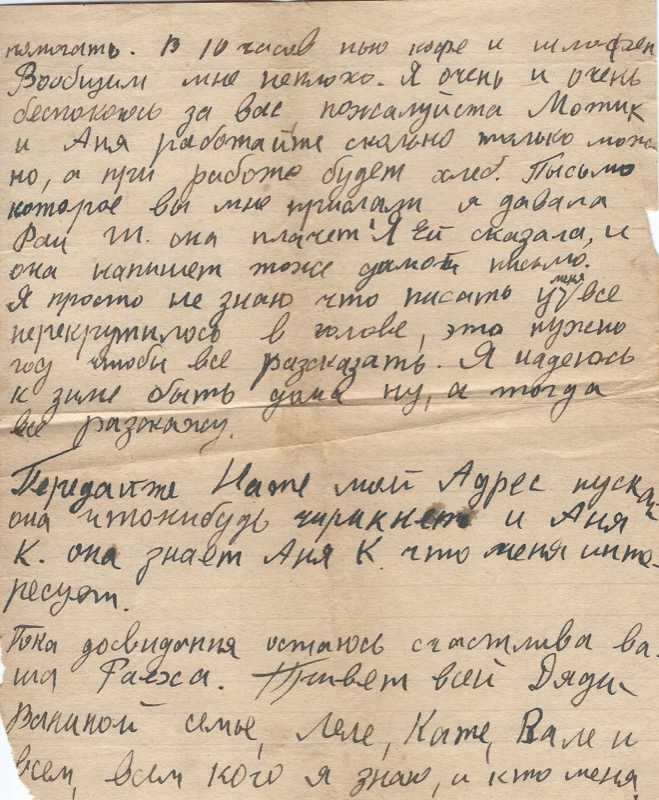 помогать. В 10 часов пью кофе и шлафен
Вообщим мне неплохо. Я очень и очень
беспокоюсь за вас, пожалуйста Мотик
и Аня работайте сколько только мож
но, а при работе будет хлеб. Письмо
которое вы мне прислали я давала
Раи Т. она плачет! Я ей сказала, и
она напишет тоже дамой письмо.
Я просто не знаю что писать у меня все
перекрутилось в голове, это нужно
год чтобы все разсказать. Я надеюсь
к зиме быть дома ну, а тогда
все разскажу.
Передайте Нате мой Адрес пускай
она чтонибудь чирикнет и Аня
К. она знает Аня К. что меня инте-
ресует.
Пока досвидания остаюсь счастлива ва-
ша Раиха. Привет всей Дяди
Ваниной семье, Леле, Кате, Вале и
всем, всем кого я знаю, и кто меня.